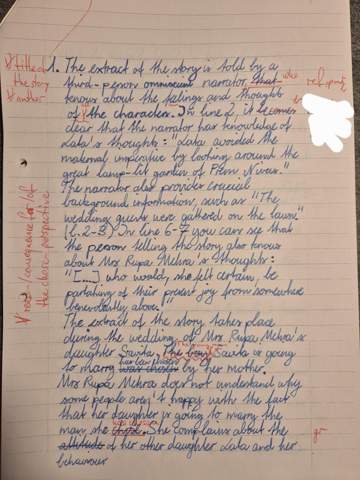 V title of
the story
+ author
1. The extract of the story is told by a
third-person omniscient narrator that who
knows about the feelings and thoughts
of the characters. In line 2, it becomes
clear that the narrator has knowledge of
Lata's thoughts: "Lata avoided the
maternal imperative by looking around the
great lamp-lit garden of Prem Nivas."
The narrator also provides crucial
background information, such as "The
wedding guests were gathered on the lawn."
(l. 2-3) In line 6-7 you can see that
the person telling the story also knows
about Mrs Rupa Mehra's thoughts:
"[...] who would, she felt certain, be
partaking of their present joy from somewhere
benevolently above."
The extract of the story takes place
during the wedding of Mrs Rupa Mehra's
daughter Savita. The Savita is going
to marry was chosen by her mother.
Mrs Rupa Mehra does not understand why
some people aren't happy with the fact
that her daughter is going to marry the
man she chose. She complains about the
attitude of her other daughter Lata and her
behaviour
gr